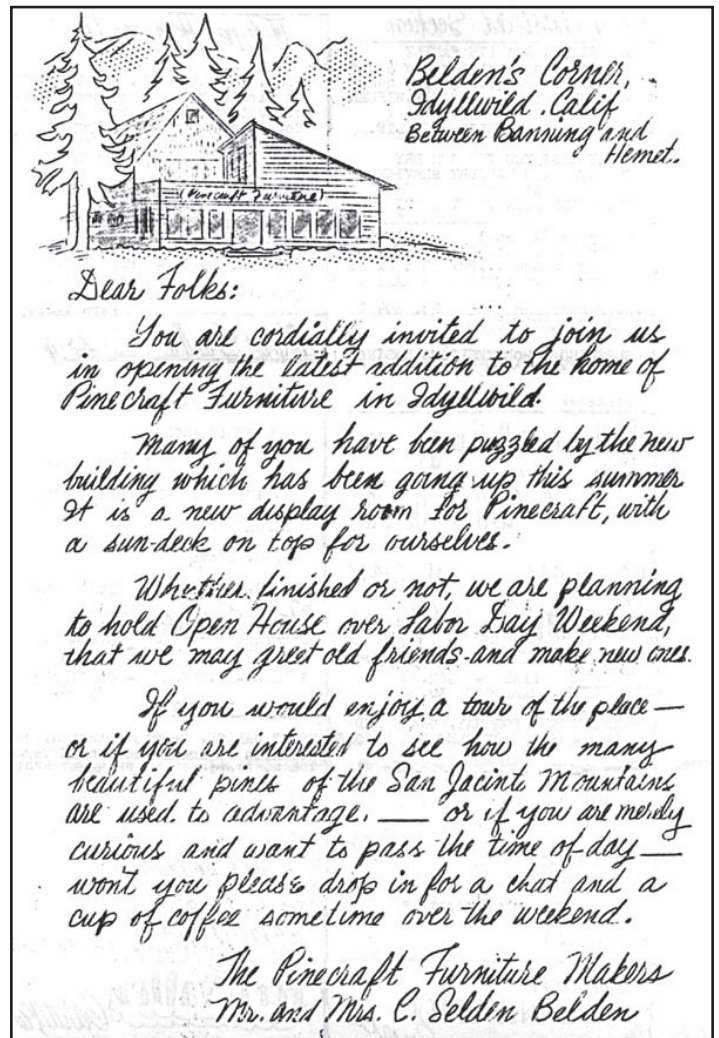 Belden's Corner,
Idyllwild. Calif
Between Banning and
Hemet.
(Pinecraft Furniture)
Dear Folks:
You are cordially invited to join us
in opening the latest addition to the home of
Pinecraft Furniture in Idyllwild.
Many of you have been puzzled by the new
building which has been going up this summer
It is a new display room for Pinecraft, with
a sun-deck on top for ourselves.
Whether finished or not, we are planning
to hold Open House over Labor Day Weekend,
that we may greet old friends-and make new ones.
If you would enjoy a tour of the place—
or if you are interested to see how the many
beautiful pines of the San Jacinto Mountains
are used to advantage. — or if you are merely
curious and want to pass the time of day —
won't you please drop in for a chat and a
cup of coffee sometime over the weekend.
The Pinecraft Furniture Makers
Mr. and Mrs. C. Selden Belden